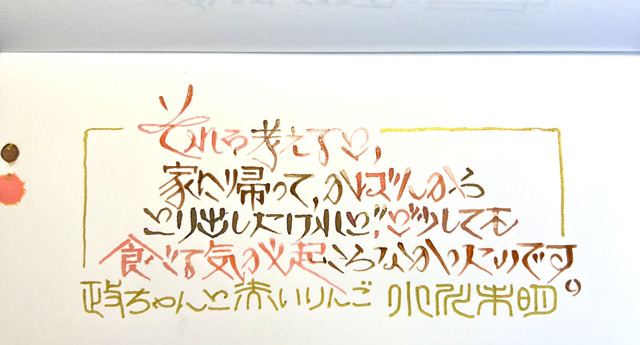 それを考えると、
家に帰って、かばんから
とり出したけれど、どうしても
食べる気が起こらなかったのです。
政ちゃんと赤いりんご 小川未明